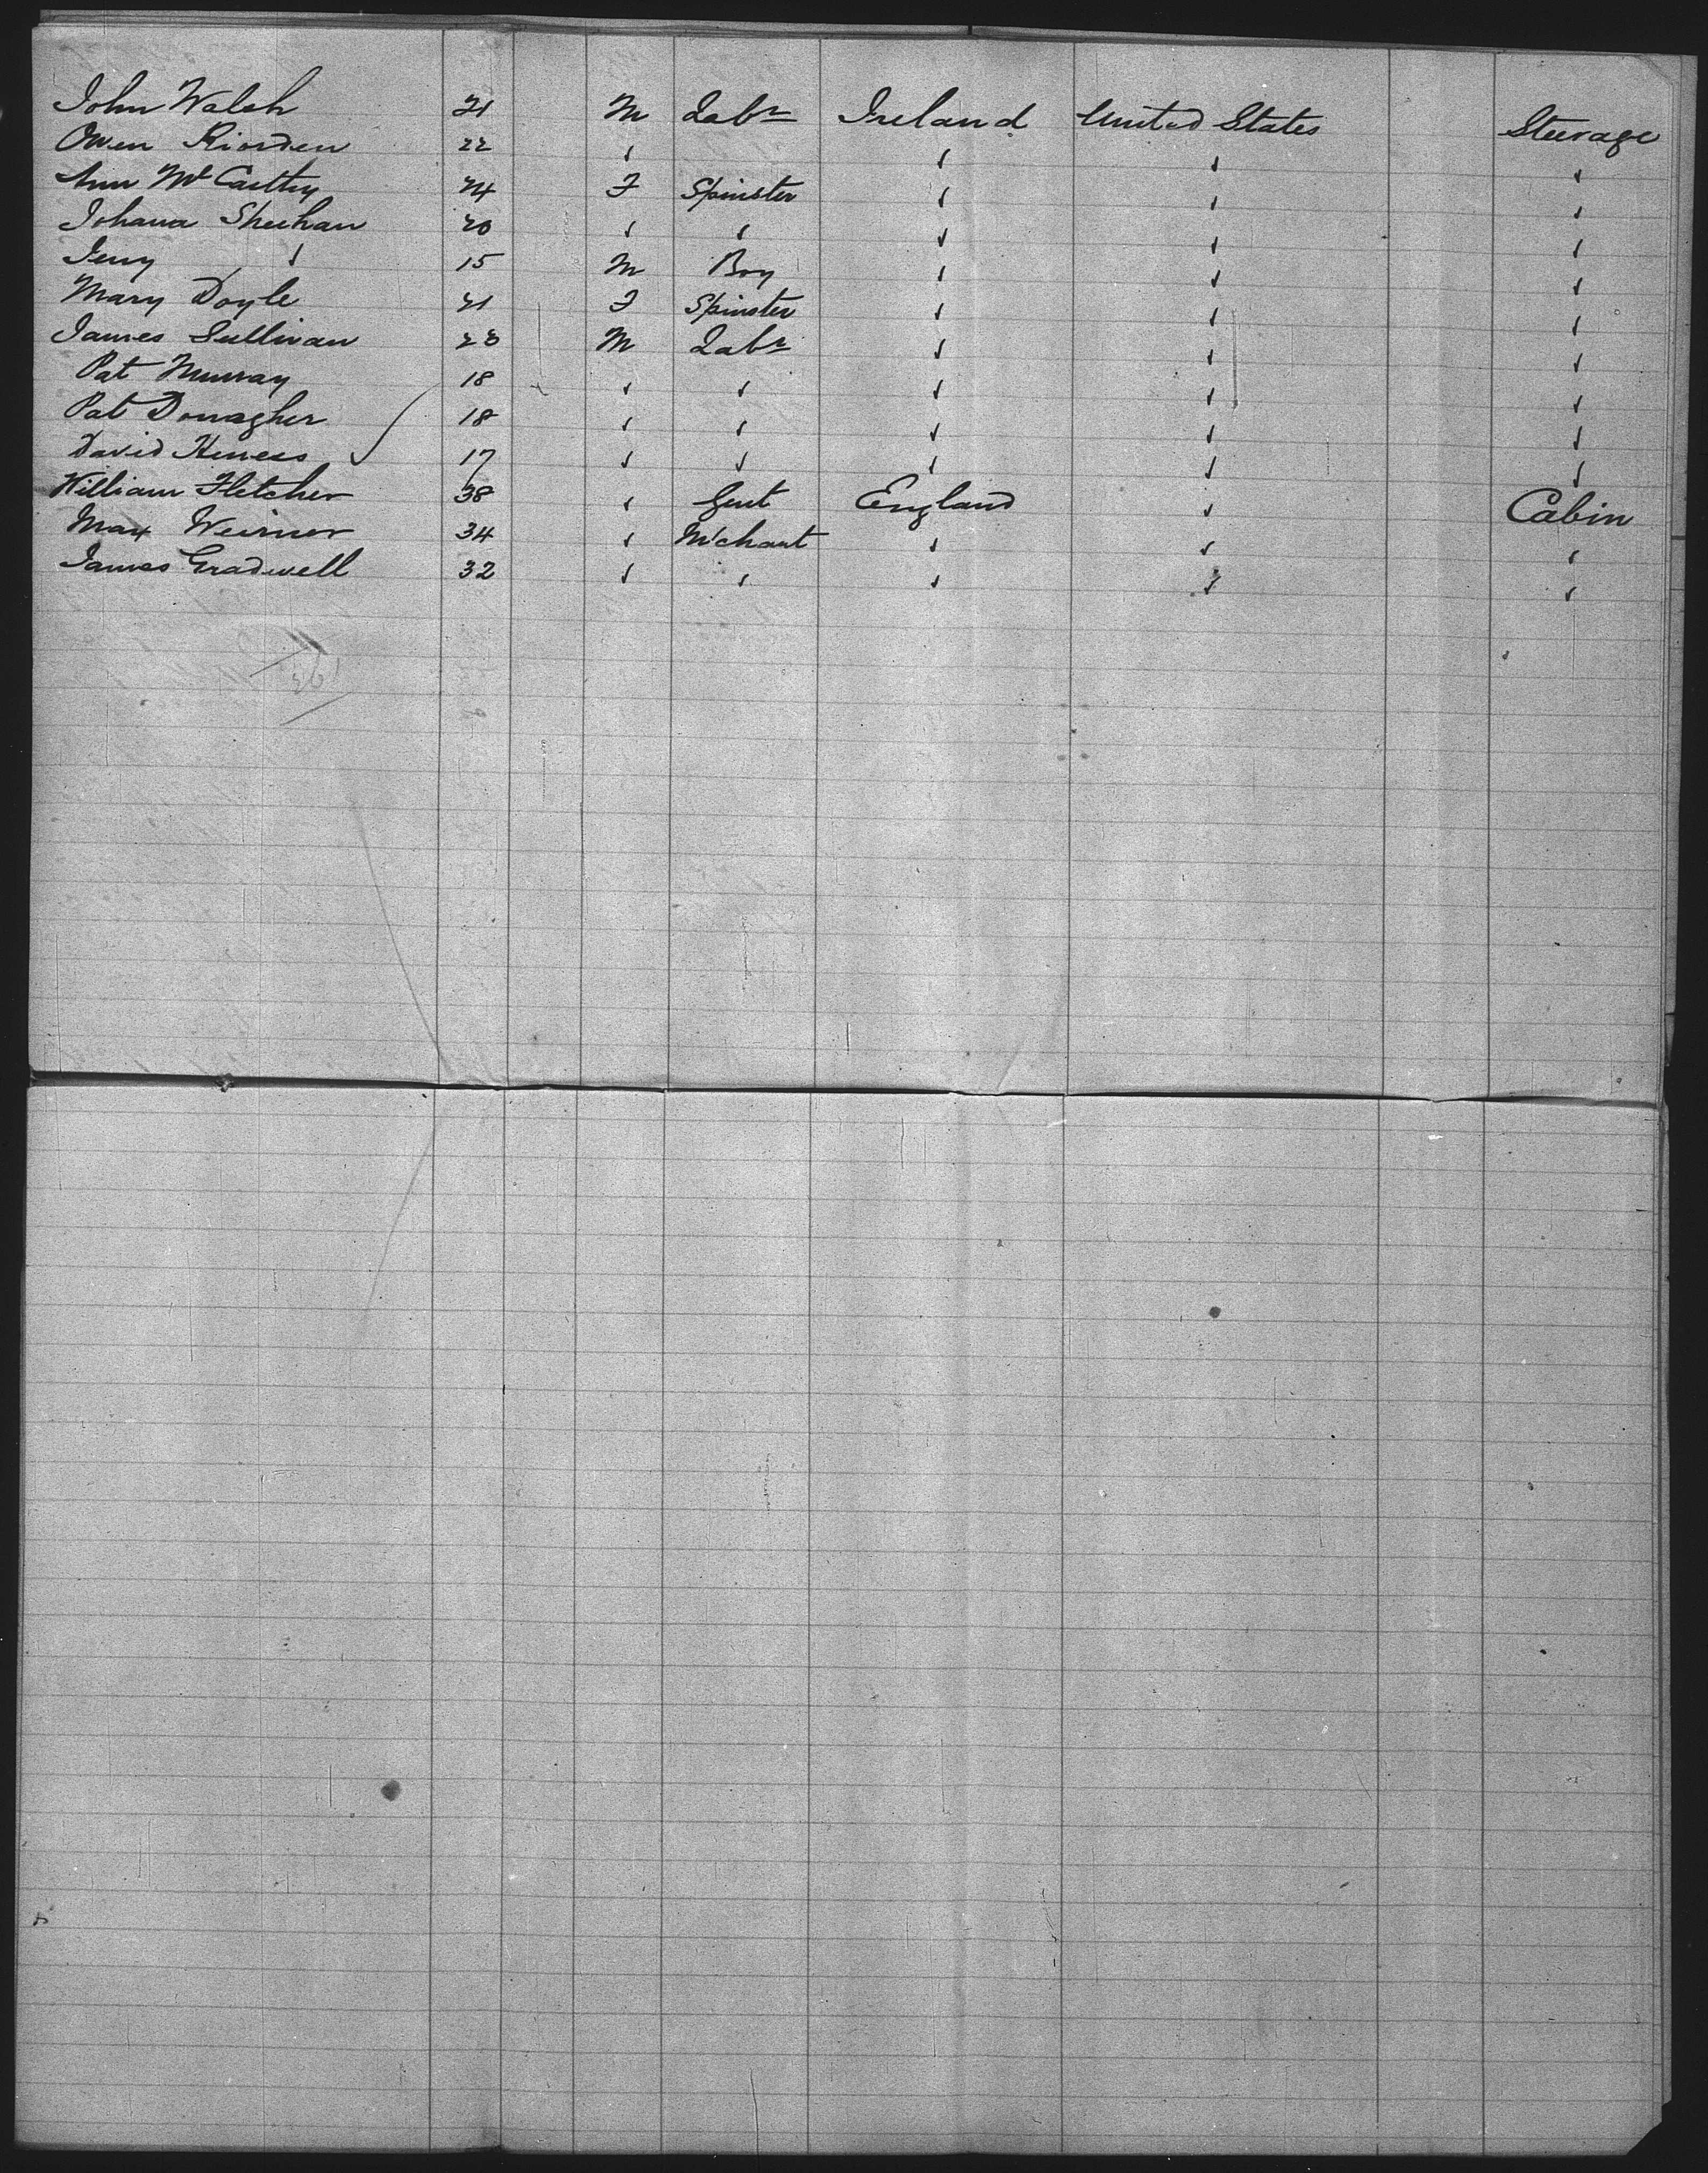 John Walsh 21 M Labr Ireland United States Steerage
Owen Riorden 22 " " " "
Ann McCarthy 24 F Spinster " " "
Johana Sheehan 20 " " " " "
Jerry " 15 M Boy " " "
Mary Doyle 21 F Spinster " " "
James Sullivan 23 M Labr " " "
Pat Murray 18 " " " " "
Pat Donagher 18 " " " " "
David 17 " " " " "
William Fletcher 38 " Gent England " Cabin
Max Weirner 34 " Mchant " " "
James Gradwell 32 " " " " "